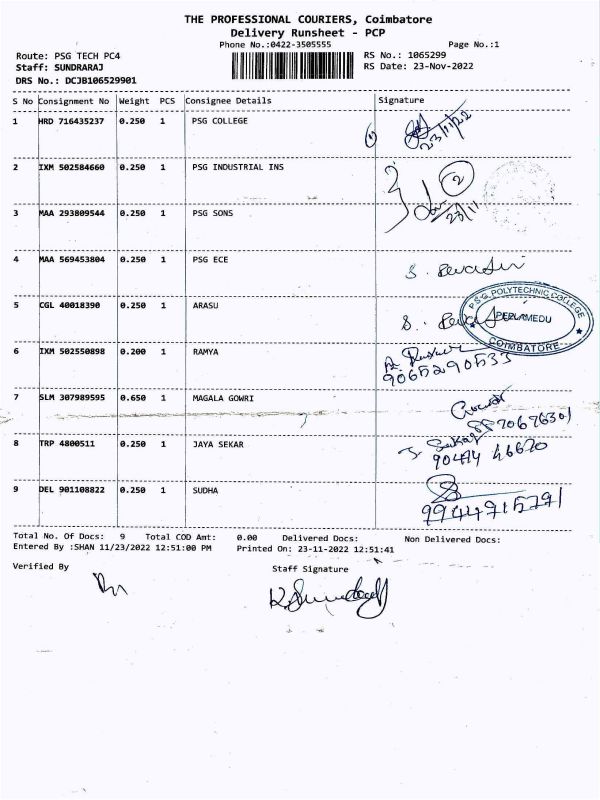 THE PROFESSIONAL COURIERS, Coimbatore
Delivery Runsheet - PCP
Phone No.:0422-3505555
Page No.:1
Route: PSG TECH PC4
RS No.: 1065299
Staff: SUNDRARAJ
RS Date: 23-Nov-2022
DRS No.: DCJB106529901
S No Consignment No Weight PCS Consignee Details Signature
1 HRD 716435237 0.250 1 PSG COLLEGE
1 23/11/22
2 IXM 502584660 0.250 1 PSG INDUSTRIAL INS
2
3 MAA 293809544 0.250 1 PSG SONS
23/11
4 MAA 569453804 0.250 1 PSG ECE
5 CGL 40018390 0.250 1 ARASU
P.S.G. POLYTECHNIC COLLEGE
PEELAMEDU
COIMBATORE
6 IXM 502550898 0.200 1 RAMYA
9065290533
7 SLM 307989595 0.650 1 MAGALA GOWRI
Gowri
8 TRP 4800511 0.250 1 JAYA SEKAR
J. Sekar
90474 46670
9 DEL 901108822 0.250 1 SUDHA
9944715791
Total No. Of Docs: 9 Total COD Amt: 0.00 Delivered Docs: Non Delivered Docs:
Entered By :SHAN 11/23/2022 12:51:00 PM Printed On: 23-11-2022 12:51:41
Verified By
Staff Signature